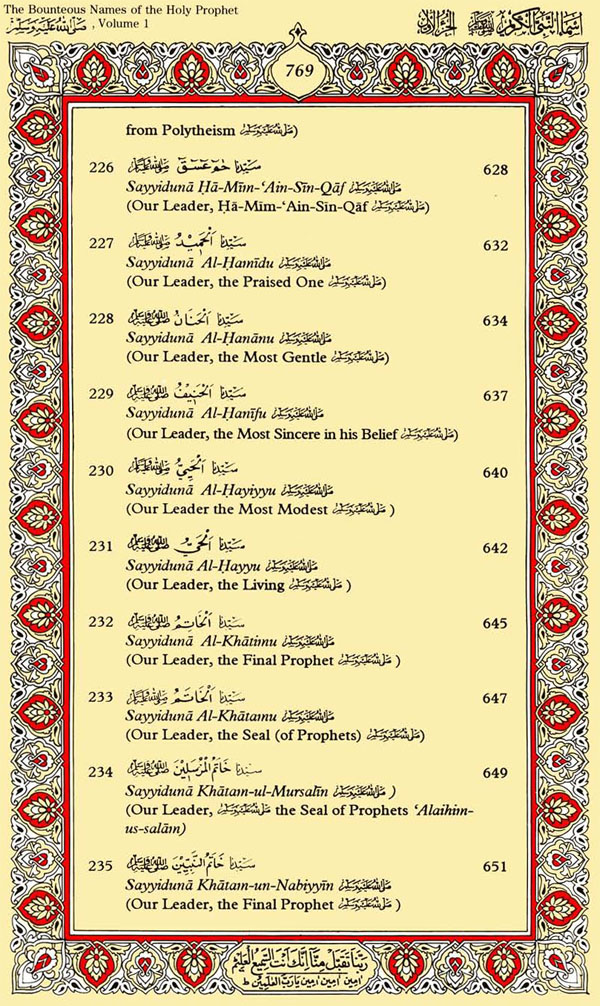 The Bounteous Names of the Holy Prophet
صلى الله عليه وسلم , Volume 1
اسماء النبي الكريم صلى الله عليه وسلم الجزء الأول
769
from Polytheism صلى الله عليه وسلم)
226 سَيِّدُنَا حٰمٓ عٓسٓقٓ صلى الله عليه وسلم 628
Sayyidunā Ḥā-Mīm-‘Ain-Sīn-Qāf صلى الله عليه وسلم
(Our Leader, Ḥā-Mim-‘Ain-Sīn-Qāf صلى الله عليه وسلم)
227 سَيِّدُنَا اَلْحَمِيْدُ صلى الله عليه وسلم 632
Sayyidunā Al-Ḥamīdu صلى الله عليه وسلم
(Our Leader, the Praised One صلى الله عليه وسلم)
228 سَيِّدُنَا اَلْحَنَانُ صلى الله عليه وسلم 634
Sayyidunā Al-Ḥanānu صلى الله عليه وسلم
(Our Leader, the Most Gentle صلى الله عليه وسلم)
229 سَيِّدُنَا اَلْحَنِيْفُ صلى الله عليه وسلم 637
Sayyidunā Al-Ḥanīfu صلى الله عليه وسلم
(Our Leader, the Most Sincere in his Belief صلى الله عليه وسلم)
230 سَيِّدُنَا اَلْحَيِيُّ صلى الله عليه وسلم 640
Sayyidunā Al-Ḥayiyyu صلى الله عليه وسلم
(Our Leader the Most Modest صلى الله عليه وسلم )
231 سَيِّدُنَا اَلْحَيُّ صلى الله عليه وسلم 642
Sayyidunā Al-Ḥayyu صلى الله عليه وسلم
(Our Leader, the Living صلى الله عليه وسلم )
232 سَيِّدُنَا اَلْخَاتِمُ صلى الله عليه وسلم 645
Sayyidunā Al-Khātimu صلى الله عليه وسلم
(Our Leader, the Final Prophet صلى الله عليه وسلم )
233 سَيِّدُنَا اَلْخَاتَمُ صلى الله عليه وسلم 647
Sayyidunā Al-Khātamu صلى الله عليه وسلم
(Our Leader, the Seal (of Prophets) صلى الله عليه وسلم)
234 سَيِّدُنَا خَاتَمُ الْمُرْسَلِيْنَ صلى الله عليه وسلم 649
Sayyidunā Khātam-ul-Mursalīn صلى الله عليه وسلم )
(Our Leader, صلى الله عليه وسلم the Seal of Prophets ‘Alaihim-
us-salām)
235 سَيِّدُنَا خَاتَمُ النَّبِيِّيْنَ صلى الله عليه وسلم 651
Sayyidunā Khātam-un-Nabiyyīn صلى الله عليه وسلم
(Our Leader, the Final Prophet صلى الله عليه وسلم )
رَبَّنَا تَقَبَّلْ مِنَّا اِنَّكَ اَنْتَ السَّمِيْعُ الْعَلِيْمُ
اٰمين اٰمين اٰمين يا رب العٰلمين ط